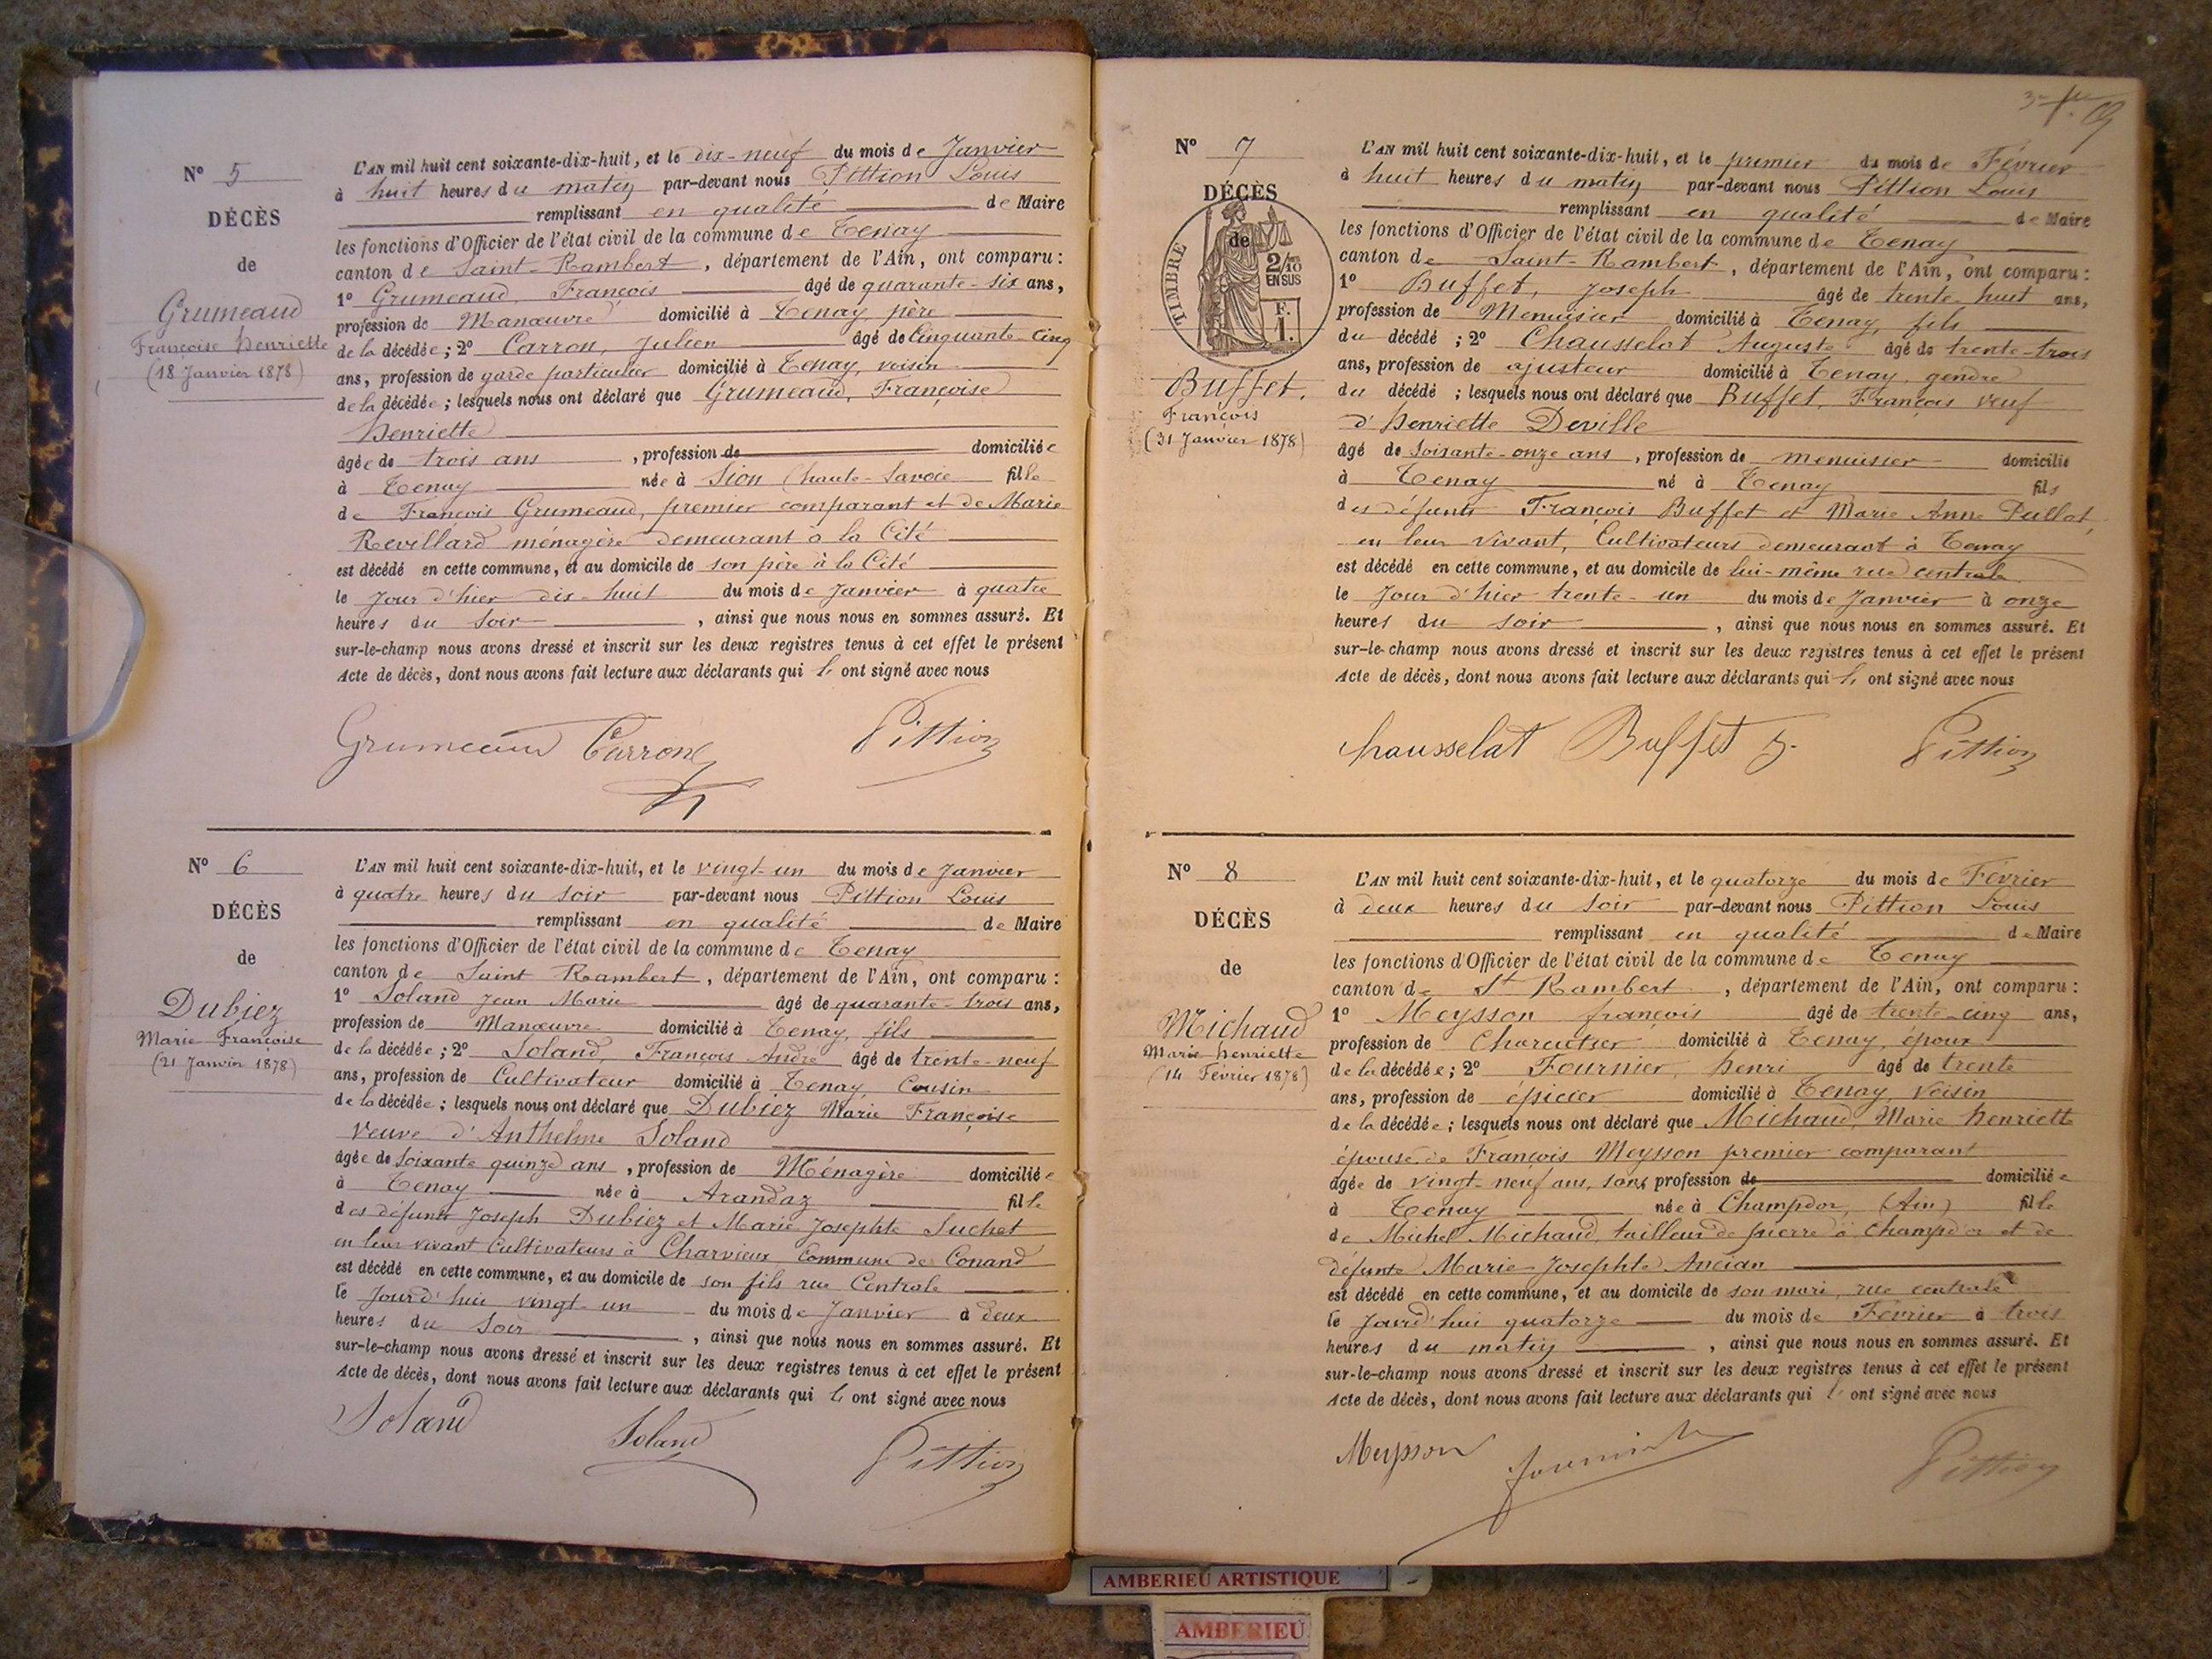 N° 5
DÉCÈS
de
Grumeaud
Françoise Henriette
(18 Janvier 1878)
L'AN mil huit cent soixante-dix-huit, et le dix-neuf du mois de Janvier
à huit heures du matin par-devant nous Pittion Louis
remplissant en qualité de Maire
les fonctions d'Officier de l'état civil de la commune de Tenay
canton de Saint-Rambert, département de l'Ain, ont comparu :
1° Grumeaud, François âgé de quarante-six ans,
profession de Manœuvre domicilié à Tenay, père
de la décédée ; 2° Carron, Julien âgé de Cinquante-cinq
ans, profession de garde particulier domicilié à Tenay, voisin
de la décédée ; lesquels nous ont déclaré que Grumeaud, Françoise
Henriette
âgée de trois ans, profession de domiciliée
à Tenay née à Sion (haute-Savoie fille
de François Grumeaud, premier comparant et de Marie
Revillard ménagère demeurant à la Cité
est décédé en cette commune, et au domicile de son père à la Cité
le Jour d'hier dix-huit du mois de Janvier à quatre
heures du Soir, ainsi que nous nous en sommes assuré. Et
sur-le-champ nous avons dressé et inscrit sur les deux registres tenus à cet effet le présent
Acte de décès, dont nous avons fait lecture aux déclarants qui ont signé avec nous
Grumeaud Carron Pittion
N° 6
DÉCÈS
de
Dubiez
Marie Françoise
(21 Janvier 1878)
L'AN mil huit cent soixante-dix-huit, et le vingt-un du mois de Janvier
à quatre heures du Soir par-devant nous Pittion Louis
remplissant en qualité de Maire
les fonctions d'Officier de l'état civil de la commune de Tenay
canton de Saint Rambert, département de l'Ain, ont comparu :
1° Soland Jean Marie âgé de quarante-trois ans,
profession de Manœuvre domicilié à Tenay, fils
de la décédée ; 2° Soland, François André âgé de trente-neuf
ans, profession de Cultivateur domicilié à Tenay, Cousin
de la décédée ; lesquels nous ont déclaré que Dubiez Marie Françoise
veuve d'Anthelme Soland
âgée de Soixante quinze ans, profession de Ménagère domiciliée
à Tenay née à Arandaz fille
des défunts Joseph Dubiez et Marie Josephte Suchet
en leur vivant Cultivateurs à Charvieux Commune de Conand
est décédé en cette commune, et au domicile de son fils rue Centrale
le Jourd'hui vingt-un du mois de Janvier à deux
heures du Soir, ainsi que nous nous en sommes assuré. Et
sur-le-champ nous avons dressé et inscrit sur les deux registres tenus à cet effet le présent
Acte de décès, dont nous avons fait lecture aux déclarants qui ont signé avec nous
Soland Soland Pittion
N° 7
DÉCÈS
de
TIMBRE
2/10
EN SUS
F.
1.
Buffet,
François
(31 Janvier 1878)
L'AN mil huit cent soixante-dix-huit, et le premier du mois de Février
à huit heures du matin par-devant nous Pittion Louis
remplissant en qualité de Maire
les fonctions d'Officier de l'état civil de la commune de Tenay
canton de Saint-Rambert, département de l'Ain, ont comparu :
1° Buffet, Joseph âgé de trente-huit ans,
profession de Menuisier domicilié à Tenay, fils
du décédé ; 2° Chausselat Auguste âgé de trente-trois
ans, profession de ajusteur domicilié à Tenay, gendre
du décédé ; lesquels nous ont déclaré que Buffet, François veuf
d'Henriette Deville
âgé de Soixante-onze ans, profession de menuisier domicilié
à Tenay né à Tenay fils
des défunts François Buffet et Marie Anne Pullat,
en leur vivant, Cultivateurs demeurant à Tenay
est décédé en cette commune, et au domicile de lui-même rue centrale
le Jour d'hier trente-un du mois de Janvier à onze
heures du soir, ainsi que nous nous en sommes assuré. Et
sur-le-champ nous avons dressé et inscrit sur les deux registres tenus à cet effet le présent
Acte de décès, dont nous avons fait lecture aux déclarants qui ont signé avec nous
Chausselat Buffet J. Pittion
N° 8
DÉCÈS
de
Michaud
Marie Henriette
(14 Février 1878)
L'AN mil huit cent soixante-dix-huit, et le quatorze du mois de Février
à deux heures du Soir par-devant nous Pittion Louis
remplissant en qualité de Maire
les fonctions d'Officier de l'état civil de la commune de Tenay
canton de St Rambert, département de l'Ain, ont comparu :
1° Meysson françois âgé de trente-cinq ans,
profession de Charcutier domicilié à Tenay, époux
de la décédée ; 2° Fournier, Henri âgé de trente
ans, profession de épicier domicilié à Tenay, voisin
de la décédée ; lesquels nous ont déclaré que Michaud, Marie Henriette
épouse de François Meysson premier comparant
âgée de vingt-neuf ans, sans profession de domiciliée
à Tenay née à Champdor, (Ain) fille
de Michel Michaud, tailleur de pierre à Champdor et de
défunte Marie Josephte Ancian
est décédé en cette commune, et au domicile de son mari, rue centrale
le Jourd'hui quatorze du mois de Février à trois
heures du matin, ainsi que nous nous en sommes assuré. Et
sur-le-champ nous avons dressé et inscrit sur les deux registres tenus à cet effet le présent
Acte de décès, dont nous avons fait lecture aux déclarants qui ont signé avec nous
Meysson Fournier Pittion
AMBERIEU ARTISTIQUE
AMBERIEU